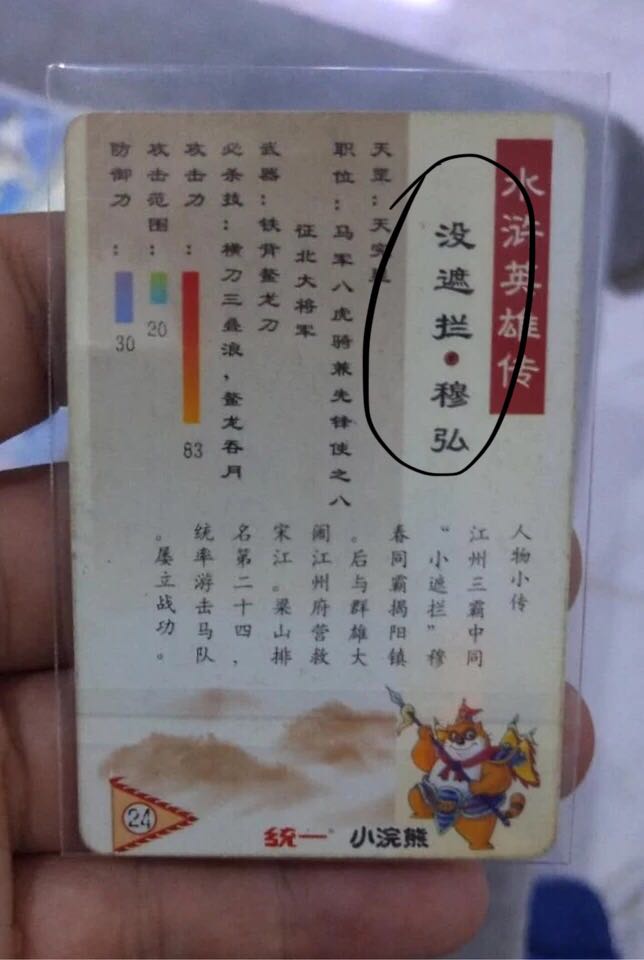 水浒英雄传
没遮拦·穆弘
天罡：天究星
职位：马军八虎骑兼先锋使之八
征北大将军
武器：铁背鳌龙刀
必杀技：横刀三叠浪，鳌龙吞月
攻击力：
83
攻击范围：
20
防御力：
30
人物小传
江州三霸中同
“小遮拦”穆
春同霸揭阳镇
。后与群雄大
闹江州府营救
宋江。梁山排
名第二十四，
统率游击马队
。屡立战功。
24
统一 小浣熊